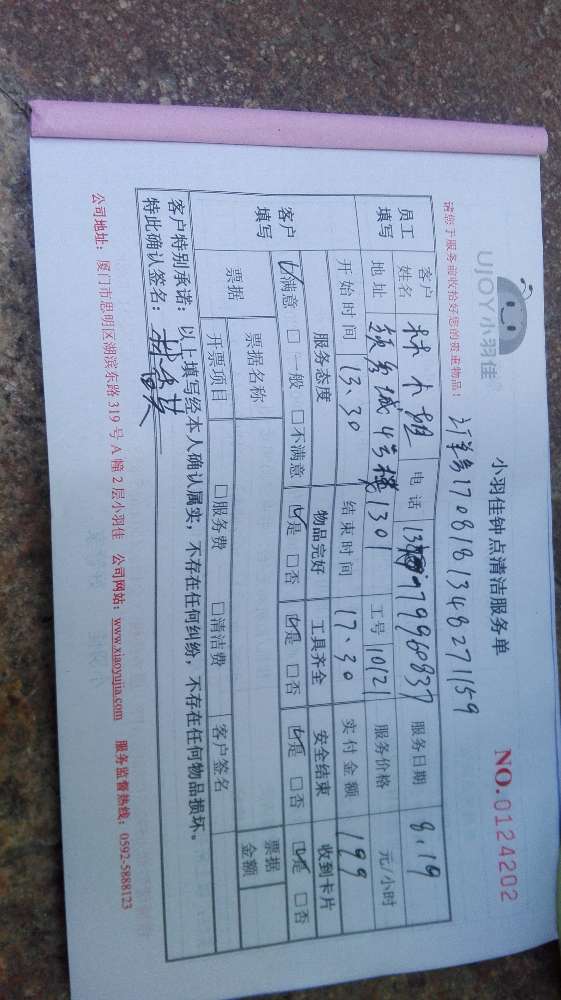 UJOY小羽佳®
小羽佳钟点清洁服务单
NO.0124202
请您于服务前收拾好您的贵重物品!
订单号1708181348271159
员工填写
客户姓名 林小姐 电话 服务日期 8.19
地址 4号楼1301 工号 10121 服务价格 元/小时
开始时间 13.30 结束时间 17.30 实付金额 199
客户填写
服务态度 物品完好 工具齐全 安全结束 收到卡片
☑满意 □一般 □不满意 ☑是 □否 ☑是 □否 ☑是 □否 ☑是 □否
票据 票据名称 票据金额
开票项目 □服务费 □清洁费 客户签名
客户特别承诺:以上填写经本人确认属实,不存在任何纠纷,不存在任何物品损坏。
特此确认签名:
公司地址:厦门市思明区湖滨东路319号A幢2层小羽佳 公司网站:www.xiaoyujia.com 服务监督热线:0592-5888123